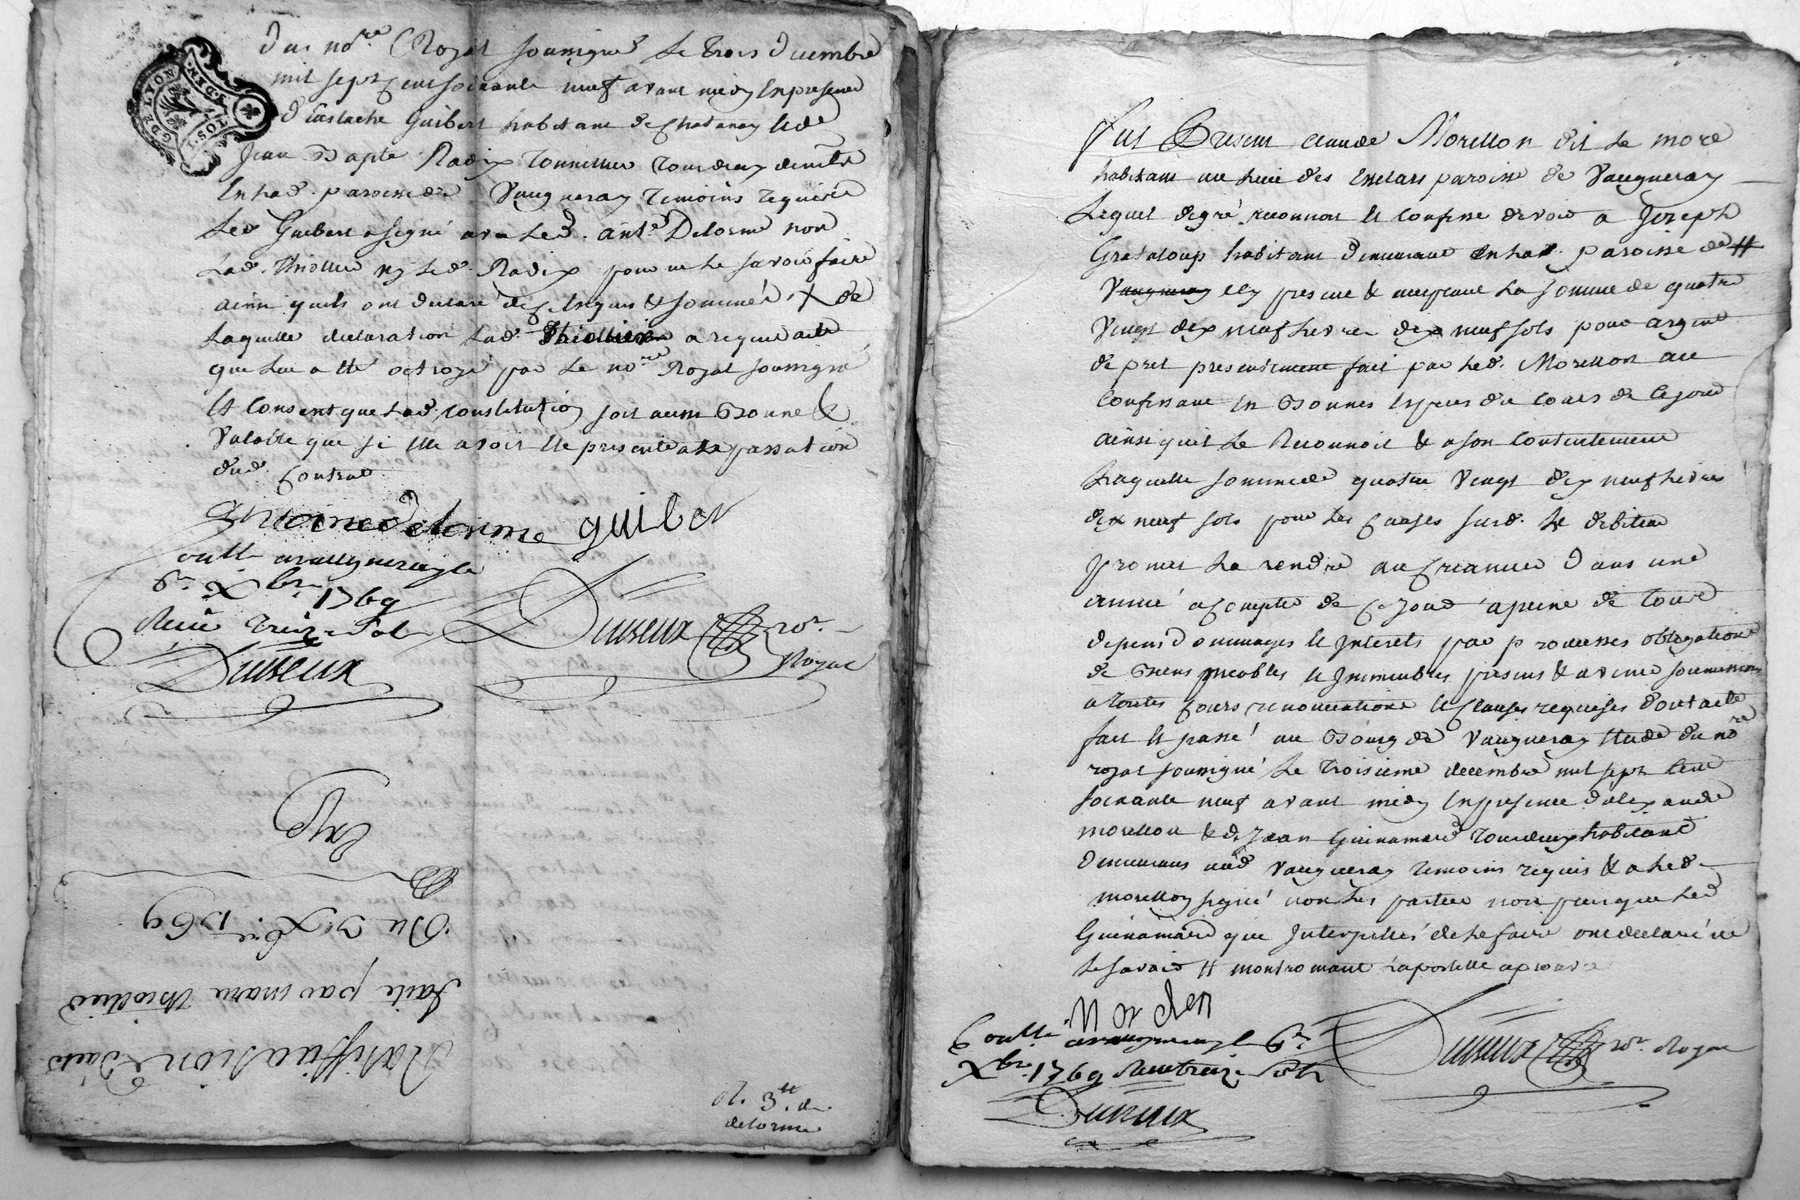 du no.re Royal soussigné le trois decembre
mil sept cent soixante neuf avant midy en presence
d'Eustache Guibert habitant de et de
Jean Bapte Radix tonnellier tous deux demts
en lad. paroisse de Vaugneray temoins requis
led Guibert a signé avec led. ant.e Delorme non
lad. thiollier ny led. Radix pour ne le savoir faire
ainsi quils ont declaré de ce enquis & sommés X de
laquelle declaration lad. thiolliere a requis acte
que luy a été octroyé par le no.re Royal soussigné
et consent que lad. constitution soit aussi bonne &
valable que si elle avoit été presente a la passation
dud. contrat
antoine delorme guiber
Conllé a vaugneray le
6.e Xbre 1769
Receu treize sols
Duiseux not.
Royal
Duiseux
Exp
Du 3 Xbre 1769
faite par marie thiollier
Ratiffication
3.tt de
delorme
GDELYON
1.SOL
4.DEN.
Fut Present claude Morellon dit le more
habitant au lieu des Enclars paroisse de Vaugneray
Lequel de gré reconnoit et confesse devoir a Joseph
Grataloup habitant demeurant en la d. paroisse de #
Vaugneray icy present & acceptant la somme de quatre
vingt dix neuf livres dix neuf sols pour argent
de pret presentement fait par led. Morellon au
confessant en bonnes especes du cours de ce jour
ainsi quil le Reconnoit & a son contentement
Laquelle somme de quatre vingt dix neuf livres
dix neuf sols pour les causes susd. le debiteur
promet la rendre au creancier dans une
année a compter de ce jour a peine de tous
depens dommages et interets par promesses obligation
de biens meubles et immeubles presens & avenir soumissions
a toutes cours renonciations et clauses requises dont acte
fait et passé au Bourg de Vaugneray Etude du no.re
royal soussigné le troisieme decembre mil sept cent
soixante neuf avant midy en presence d'alexandre
morellon & de Jean Guinamard tous deux habitant
demeurans aud Vaugneray temoins requis & a led
morellon signé non les parties non plus que led
Guinamard que interpellés de le faire ont declaré ne
le savoir # montromant l'apostille aprouvé
Morellon
Conllé a vaugneray le 6.e
Xbre 1769 Receu treize sols
Duiseux not. Royal
Duiseux